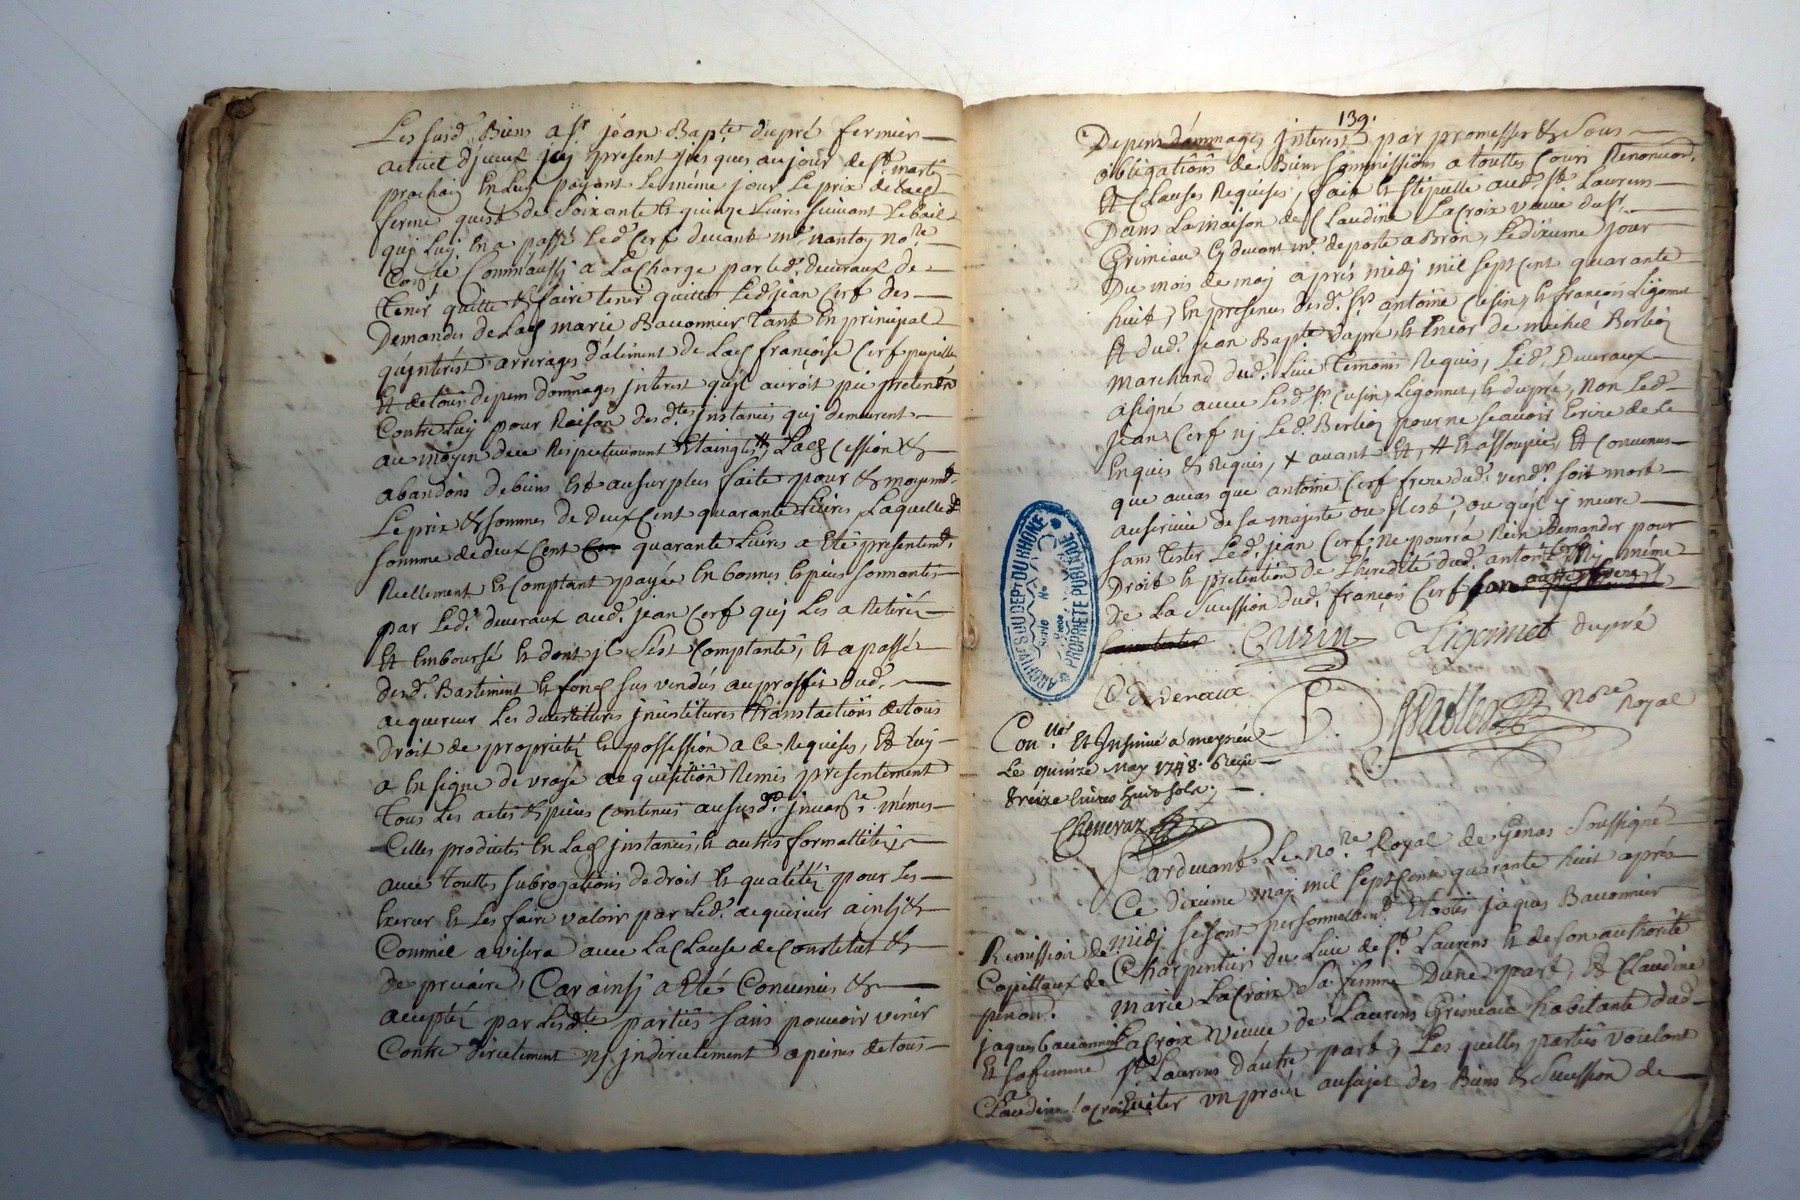 Les susd. Biens a sr. jean Bapte. dupré fermier
actuel d'jceux jcj present jusques au jour de st. martin
prochain En Luy payant Le méme jour Le prix de Lad.
ferme quj est de Soixante et quinze Livres suivant Le bail
quj Luj En a passé Led. Cerf devant me. nantoy nore.
Comme aussj a La Charge par led. deveraux de
tenir quitte & faire tenir quitte Led. jean Cerf des
Demandes de Lad. marie Bauonnier tant En principal
qu'jnterest arrerages d'aliment de Lad. françoise Cerf pupille
Et de tous depens dommages jnterest qu'jl auroit pû pretendre
Contre Luj pour Raison desd. tes jnstances quj demeurent
au moyen de ce Respectivement Etaingtes, Lad. Cession &
abandons de biens Est au surplus faite pour & moyent.
Le prix & sommes de Deux Cent quarante Livres Laquelle
somme de deux Cent quarante Livres a Eté presentemt.
Réellement et Comptant payée En bonnes Espéces sonnantes
par Led. deveraux aud. jean Cerf quj Les a Retirées
Et Emboursé Et dont jl S'est Comptanté, Et a passé
desd. Bastiment et fond sus vendus au proffit dud.
acquereur Les devestitures jnvestitures transtactions de tous
Droit de propriete Et possession a Ce Requises, Et Luy
a En signe de vraye acquisition Remis presentement
Tous Les actes & pieces Contenues au susd. jnvenre. mémes
Celles produites En Lad. jnstances, et autres formallités
avec touttes subrogations de droit Et qualités pour Les
Exercer Et Les faire valoir par Led. acquereur ainsj &
Comme avisera avec La Clause de Constitut &
de precaire, Car ainsj a Eté Convenus &
accepté par Lesd. parties sans pouvoir venir
Contre directement nj jndirectement a peines de tous
139.
Depens dommages jnterest par promesses & Sous
obligations de Biens Sommissions a touttes Cours Renonciaõn.
Et Clauses Requises, fait et stipullé aud. st. Laurens
Dans La maison de Claudine LaCroix veuve du sr.
Grimeau Cy devant me. de poste a Bron, Le dixieme jour
Du mois de maj aprés midj mil sept cent quarante
huit, En presences desd. srs. antoine Cusin, et françois Ligonnet
Et dud. jean Bapte. dupré, et Encor de michel Berlioz
marchand dud. Lieu temoins Requis, Led. Deveraux
a signé avec Lesd. srs. Cusin, Ligonnet, et dupré, non Led.
jean Cerf nj Led. Berlioz pour ne sçavoir Ecrire de Ce
Enquis & Requis, x avant Et, # Et assoupies, Et Convenus
que au cas que antoine Cerf frere dud. vendr. soit mort
au service de sa majesté ou jl est, ou qu'jl y meure
sans tester Led. jean Cerf ne pourra Rien Demander pour
Droit et pretention de L'heredité dud. antoine nj méme
de La Succession dud. françois Cerf
Cusin Ligonnet dupré
C Deveraux
nore Royal
Conlle. Et Insinué a meysieu
Le quinze May 1748. Reçu
treize livres huit sols.
Cheneraz
Pardevant Le nore. Royal de Genas Soussigné
Ce dixieme maj mil sept Cent quarante huit aprés
midj se sont personnelemt. Etablis jaques Bauonnier
Charpentier du Lieu de st. Laurens et de son authorité
marie LaCroix Sa femme D'une part, Et Claudine
LaCroix veuve de Laurens Grimeau habitante dud.
st. Laurens d'autre part, Les quelles parties voulant
Eviter un procés au sujet des Biens & Succession de
Remission de
Capitteaux de
pension.
jaques bauonnier
Et sa femme
a
Claudine lacroix
ARCHIVES DU DEPT DU RHÔNE
Série No
PROPRIETE PUBLIQUE